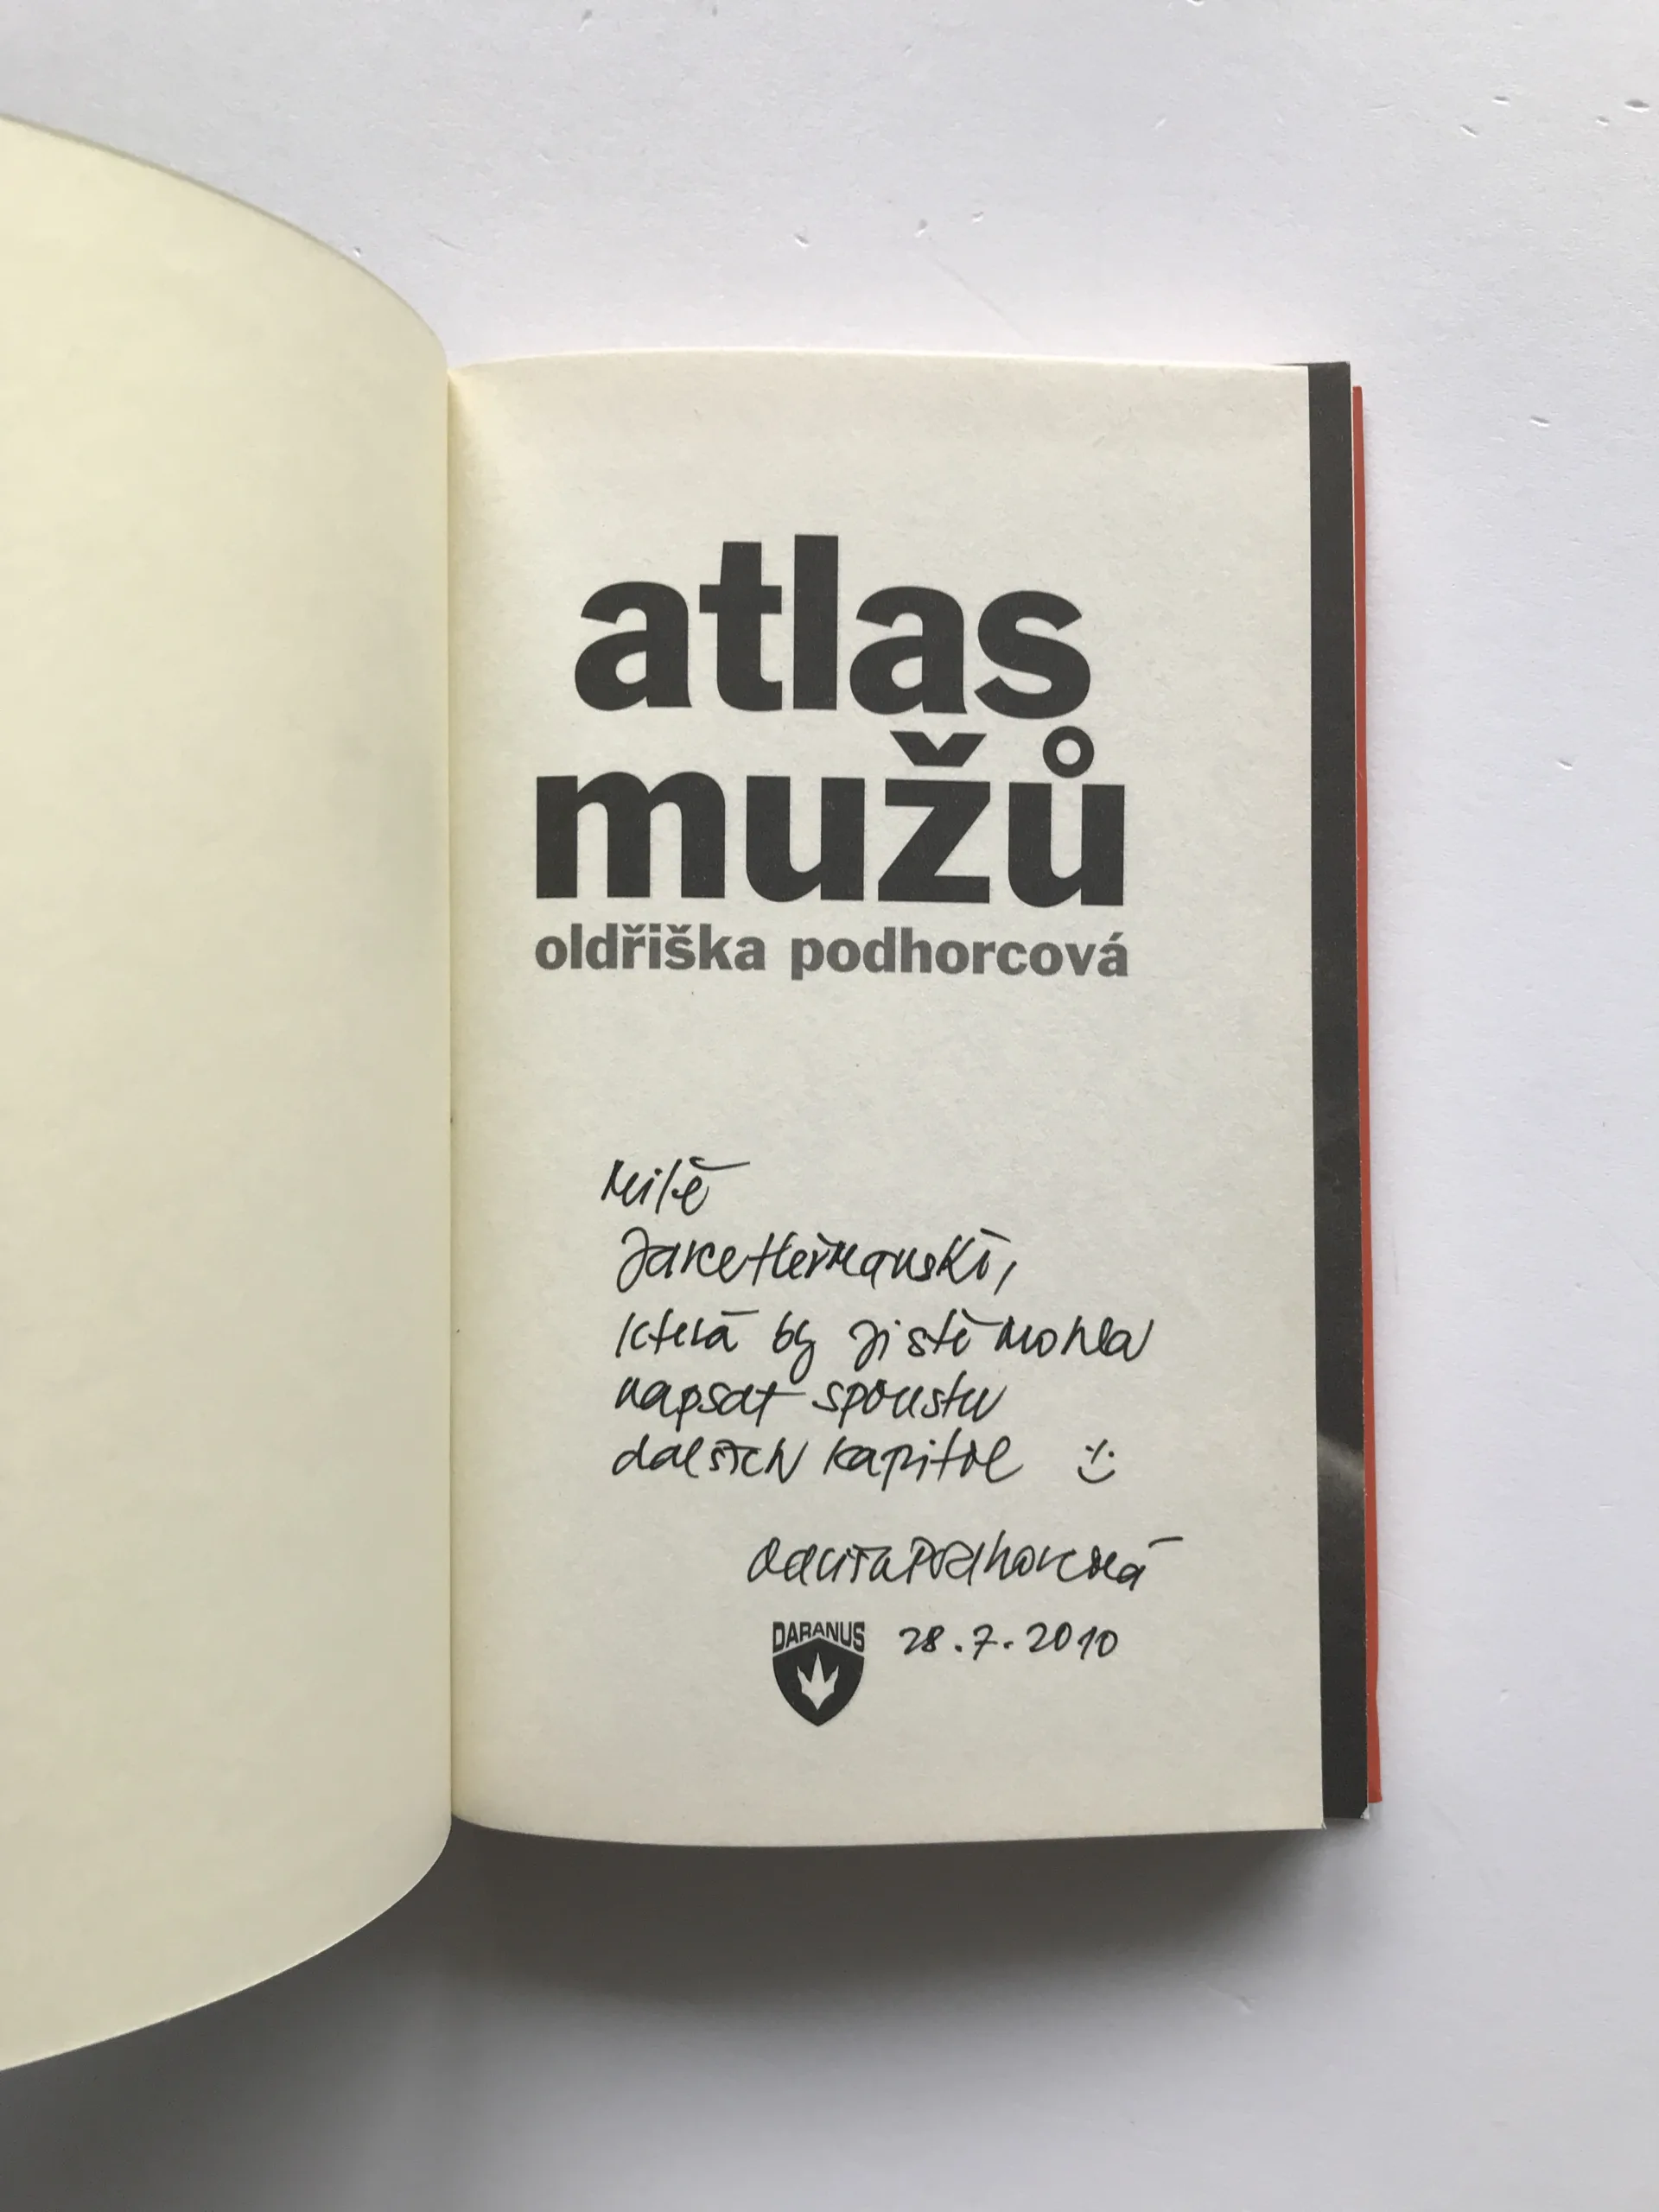 atlas
mužů
oldřiška podhorcová
Milé
Jarce Heřmanské,
která by jistě mohla
napsat spoustu
dalších kapitol :-)
Podhorcová
DARANUS 28.7.2010